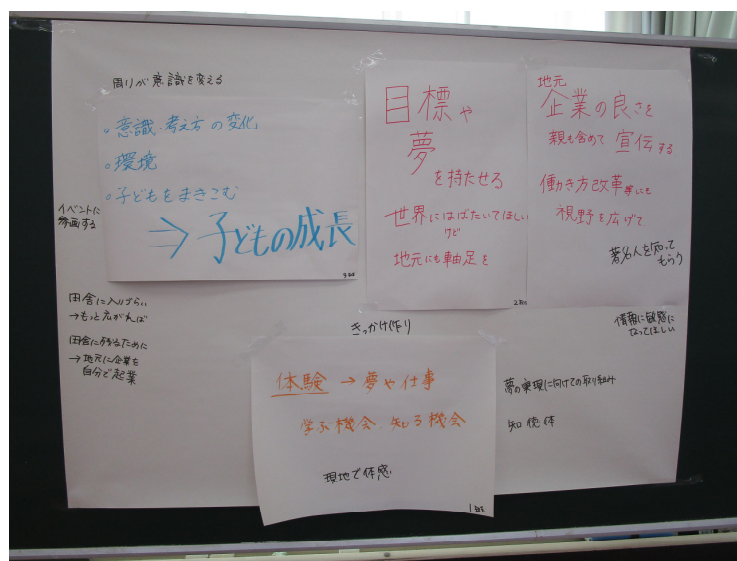 周りが意識を変える
。意識・考え方の変化
。環境
。子どもをまきこむ
⇒子どもの成長
イベントに
参画する
田舎に入りづらい
→もっと広がれば
田舎に残るために
→地元に企業を
自分で起業
目標や
夢
を持たせる
世界にはばたいてほしい
けど
地元にも軸足を
2班
地元
企業の良さを
親も含めて宣伝する
働き方改革等にも
視野を広げて
著名人を知って
もらう
情報に敏感に
なってほしい
きっかけ作り
体験→夢や仕事
学ぶ機会、知る機会
現地で体感
1班
夢の実現に向けての取り組み
知徳体